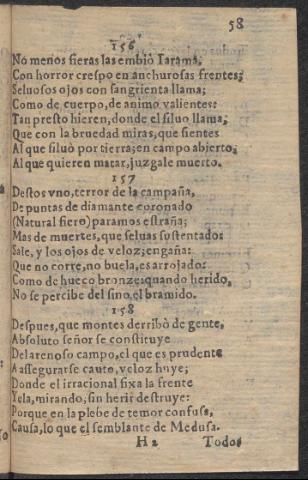 58
156
No menos fieras las embiò Iarama,
Con horror crespo en anchurosas frentes;
Seluosos ojos con sangrienta llama;
Como de cuerpo, de animo valientes:
Tan presto hieren, donde el siluo llama;
Que con la bruedad miras, que sientes
Al que siluò por tierra; en campo abierto,
Al que quieren matar, juzgale muerto.
157
Destos vno, terror de la campaña,
De puntas de diamante coronado
(Natural fiero) paramos estraña;
Mas de muertes, que seluas sustentado:
Sale, y los ojos de veloz; engaña:
Que no corre, no buela, es arrojado:
Como de hueco bronze: quando herido,
No se percibe del sino, el bramido.
158
Despues, que montes derribò de gente,
Absoluto señor se constituye
Del arenoso campo, el que es prudente
A assegurarse cauto, veloz huye;
Donde el irracional fixa la frente
Yela, mirando; sin herir destruye:
Porque en la plebe de temor confusa,
Causa, lo que el semblante de Medusa.
H 2 Todos